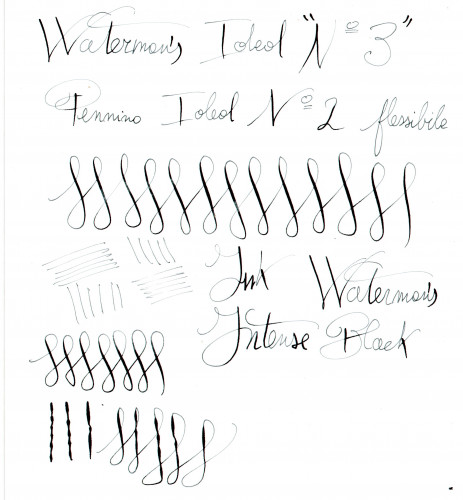 Waterman's Ideal "Nº 3"
Pennino Ideal Nº 2 flessibile
Ink Waterman's
Intense Black